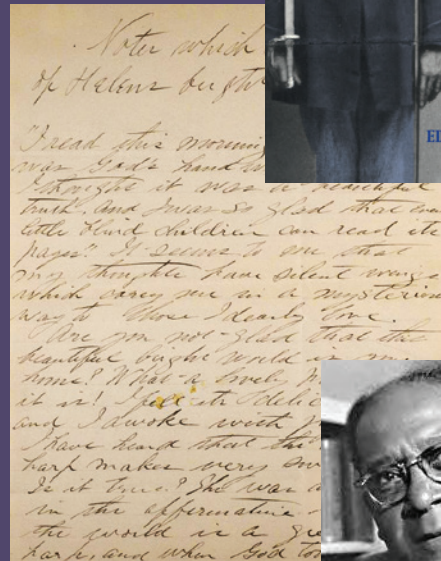 Notes which
of Helens bright
EI
"I read this morning
was God's hand w
I thought it was a beautiful
truth. And I was so glad that even
little blind children can read its
pages." It seems to me that
my thoughts have silent wings
which carry me in a mysterious
way to those I dearly love.
Are you not glad that this
beautiful bright world is my
home? What a lovely
it is! I felt its delic
and I awoke with
I have heard that the
harp makes very sw
Is it true? She was a
in the affirmative
the world is a gre
harp, and when God tou